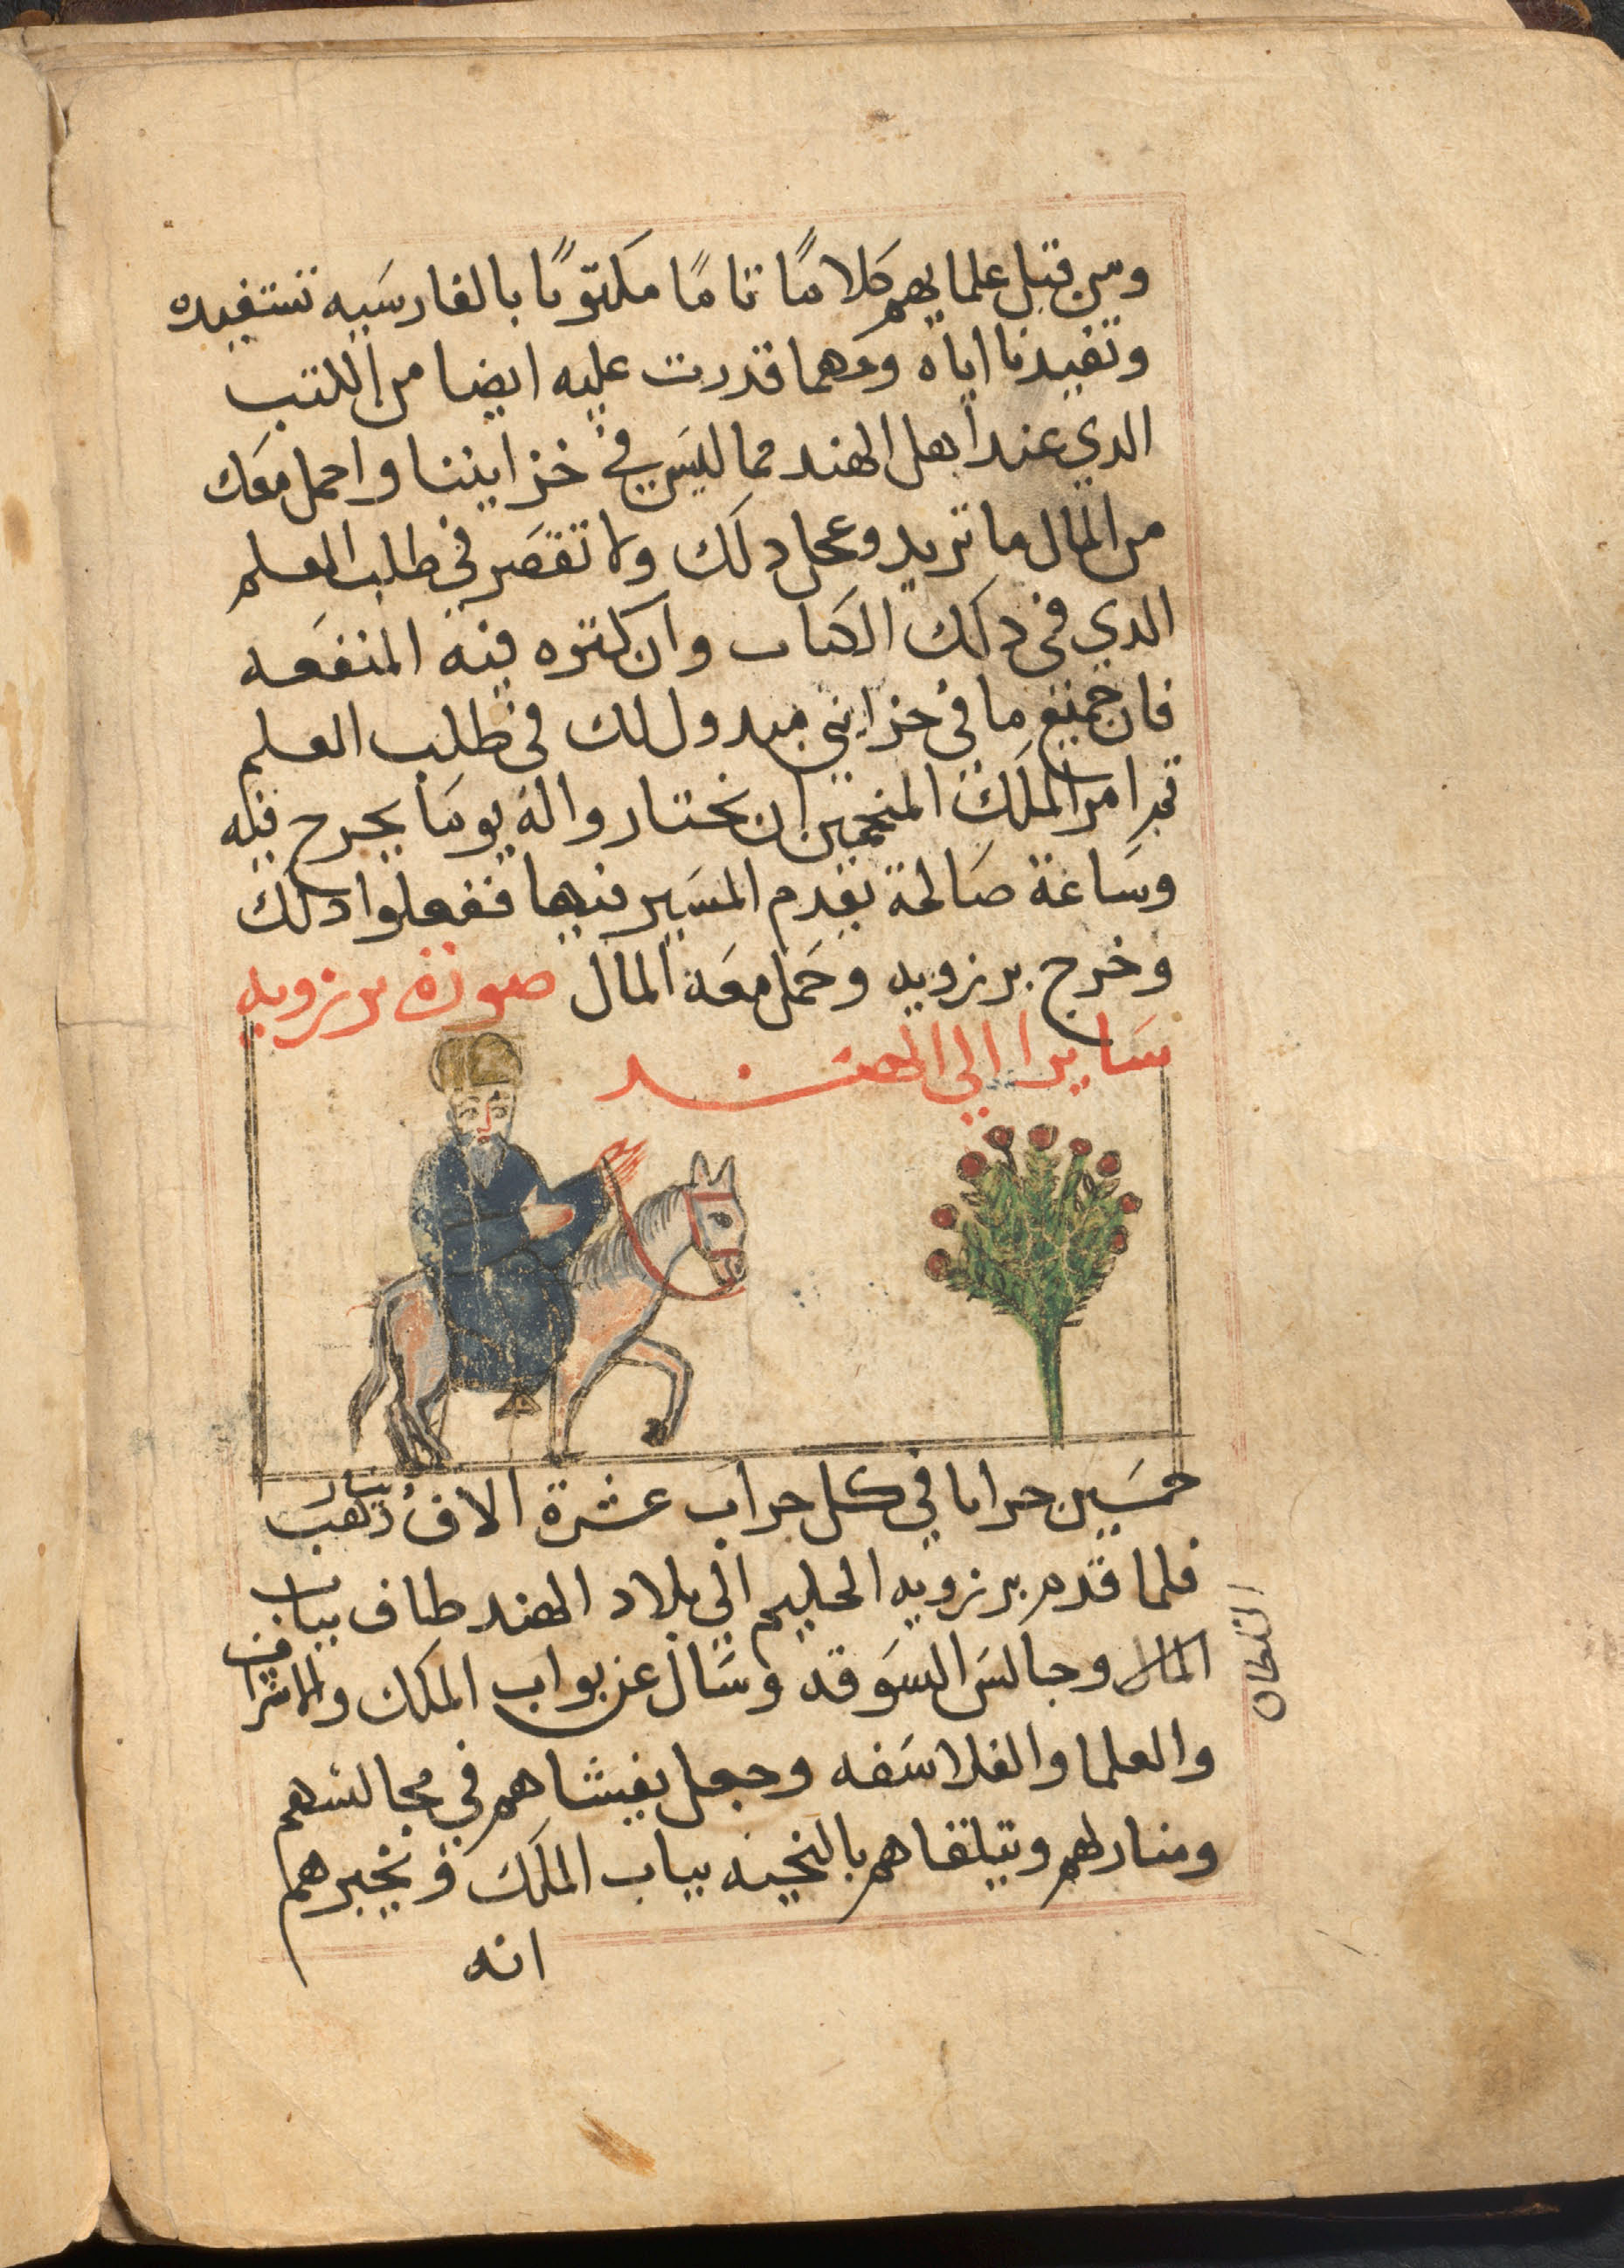 ومن قبل علمايهم كلامًا تامًا مكتوبًا بالفارسيه تستفيده
وتفيدنا اياه ومهما قدرت عليه ايضا من الكتب
الدي عند اهل الهند مما ليس في خزايننا واحمل معك
من المال ما تريد وعجل دلك ولا تقصر في طلب العلم
الدي في دلك الكتاب وان كثره فيه المنفعه
فان جميع ما في خزايني مبدول لك في طلب العلم
ثم امر الملك المنجمين ان يختاروا له يوما يخرج فيه
وساعة صالحة يقدم المسير فيها ففعلوا دلك
وخرج برزويه وحمل معه المال صورة برزويه
سايرا الي الهند
خمسين جرابا في كل جراب عشرة الاف دينار ذهب
فلما قدم برزويه الحليم الي بلاد الهند طاف بباب
المال وجالس السوقه وسال عن بواب الملك والاشراف
السلطان
والعلما والفلاسفه وجعل يغشاهم في مجالسهم
ومنازلهم ويتلقاهم بالتحيه بباب الملك ويخبرهم
انه